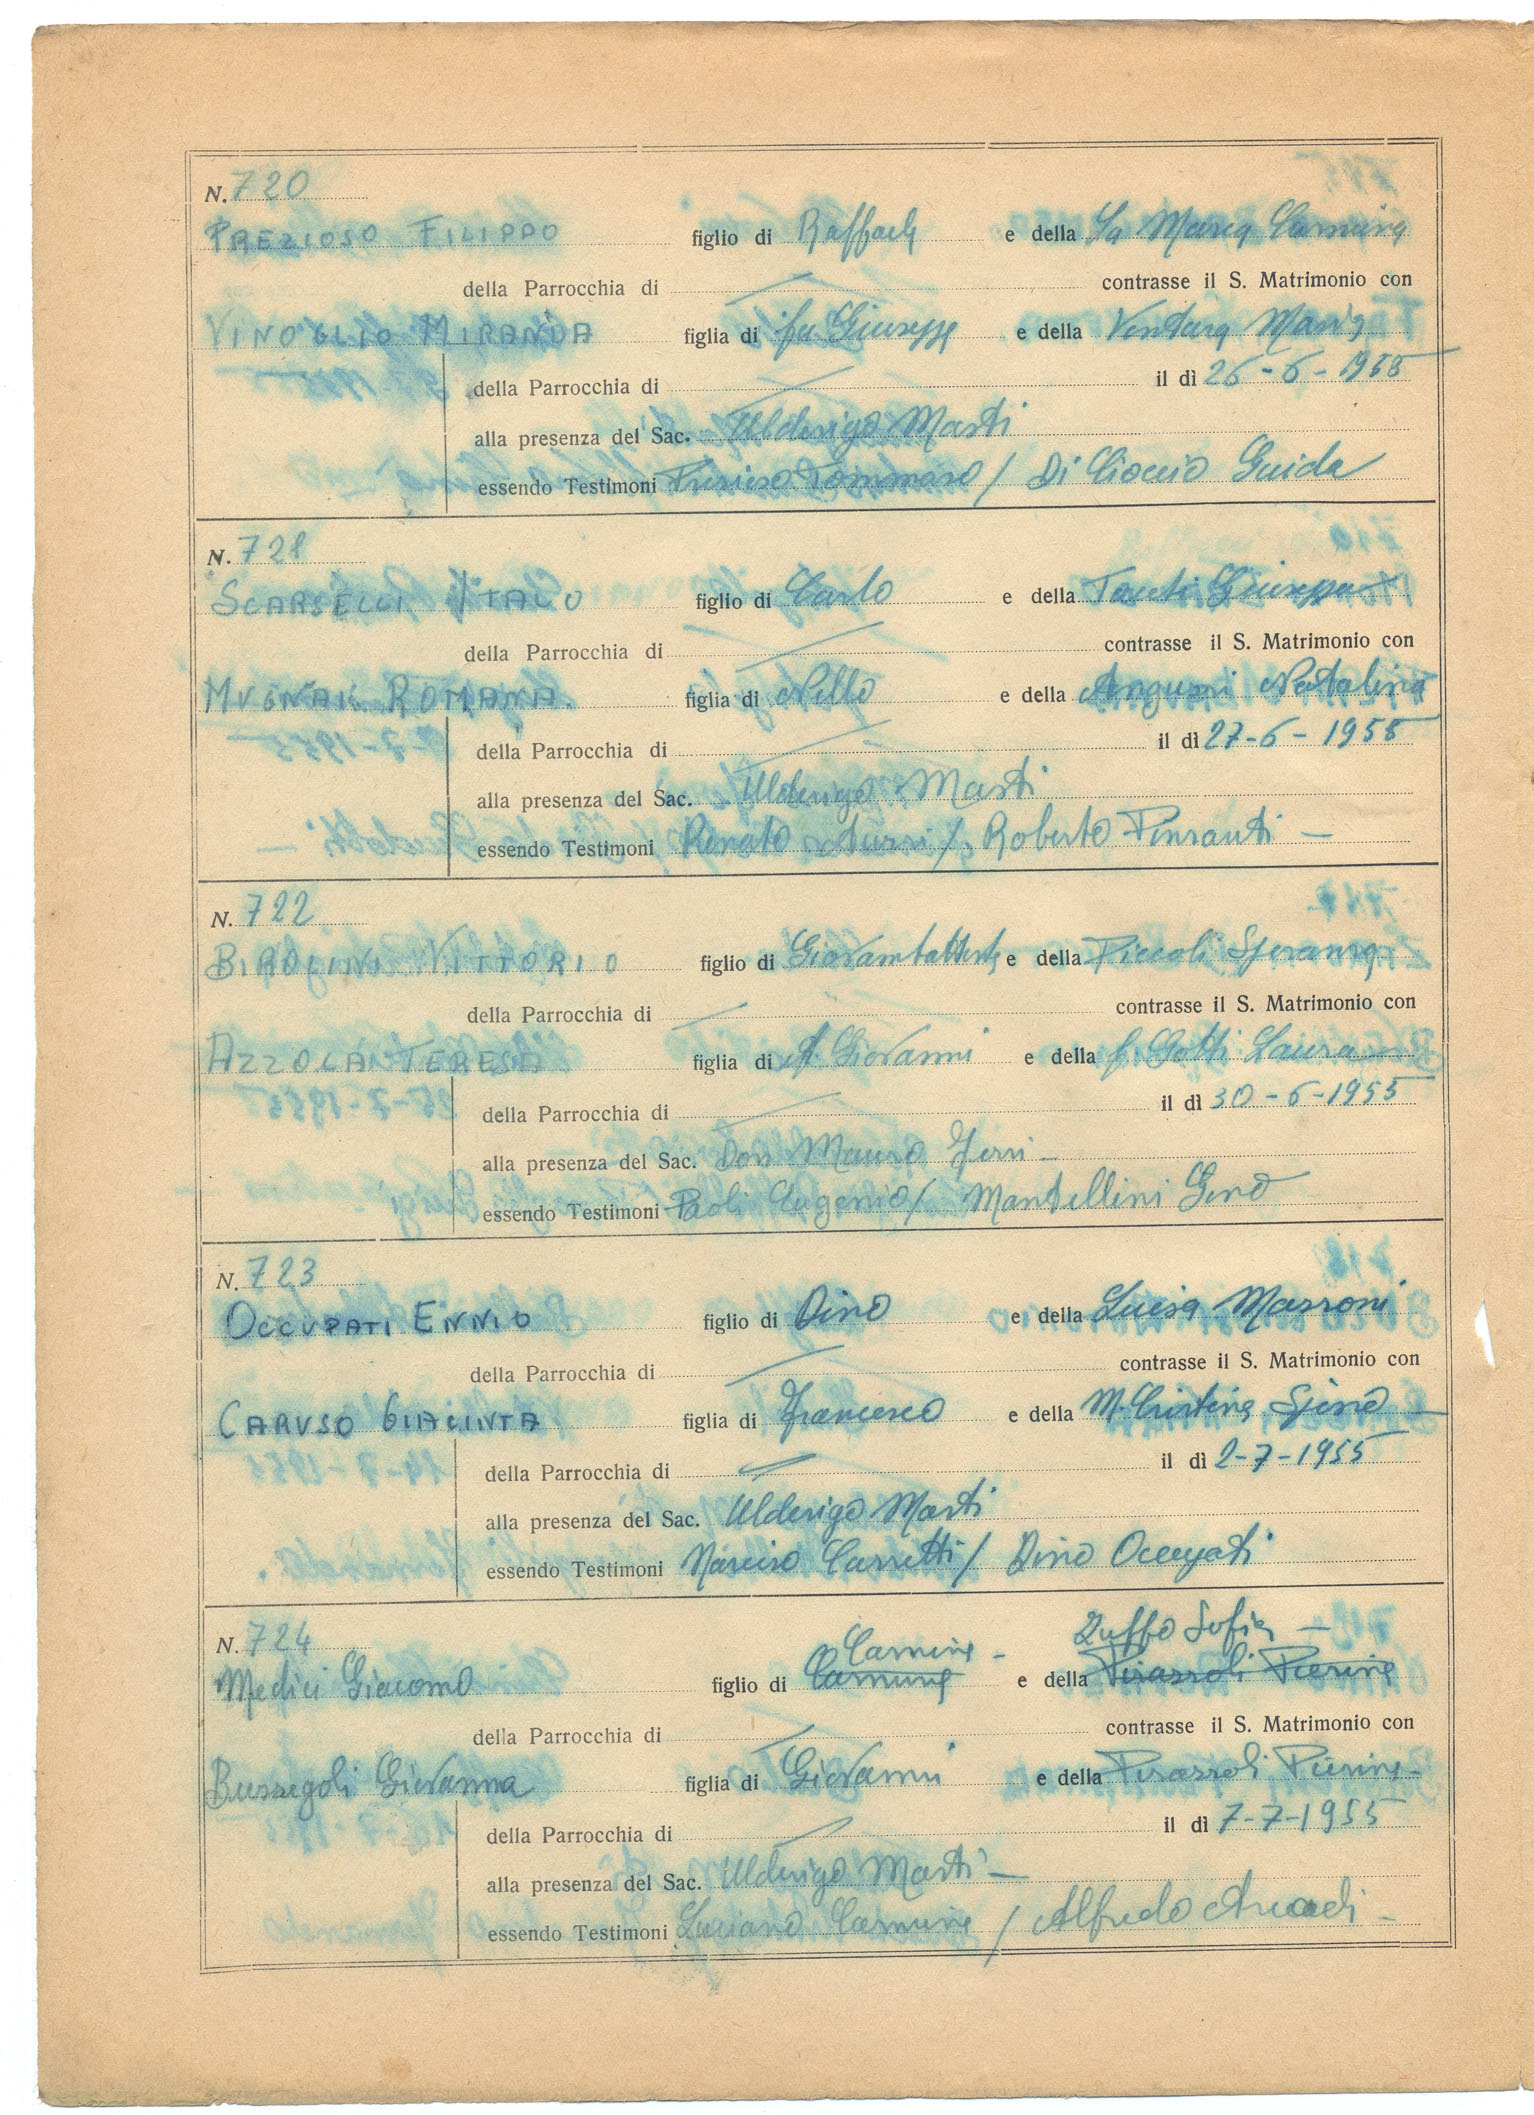 N. 720
PREZIOSO FILIPPO figlio di Raffaele e della La Marca Carmina
della Parrocchia di contrasse il S. Matrimonio con
VINOGLIO MIRANDA figlia di fu Giuseppe e della Ventura Maria
della Parrocchia di il dì 26-6-1955
alla presenza del Sac. Ulderigo Masti
essendo Testimoni Tommaso / Di Cioccio Guida
N. 721
SCARSELLI ITALO figlio di Carlo e della Tauti Giuseppa
della Parrocchia di contrasse il S. Matrimonio con
MUGNAI ROMANA figlia di Nello e della Natalina
della Parrocchia di il dì 27-6-1955
alla presenza del Sac. Ulderigo Masti
essendo Testimoni Renato / Roberto Pensanti -
N. 722
BIROLINI VITTORIO figlio di Giovambattista e della Piccoli Speranza
della Parrocchia di contrasse il S. Matrimonio con
AZZOLA TERESA figlia di f. Giovanni e della f. Gotti Laura
della Parrocchia di il dì 30-6-1955
alla presenza del Sac. Don Mauro -
essendo Testimoni Paoli Eugenio / Mantellini Gino
N. 723
OCCUPATI ENNIO figlio di Dino e della Luisa Marroni
della Parrocchia di contrasse il S. Matrimonio con
CARUSO GIACINTA figlia di Francesco e della M. Cristina Spinò
della Parrocchia di il dì 2-7-1955
alla presenza del Sac. Ulderigo Masti
essendo Testimoni Narciso / Dino Occupati
Carmine - Ruffo Sofia -
N. 724
Medici Giacomo figlio di Carmine e della Pirazzoli Pierina
della Parrocchia di contrasse il S. Matrimonio con
Bussegoli Giovanna figlia di Giovanni e della Pirazzoli Pierina -
della Parrocchia di il dì 7-7-1955
alla presenza del Sac. Ulderigo Masti -
essendo Testimoni Luciano Carmine / Alfredo -